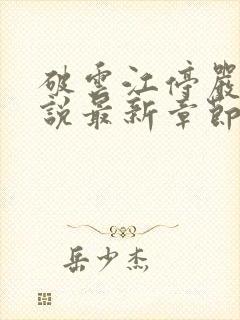 破雲江停嚴
說最新章節
岳少杰